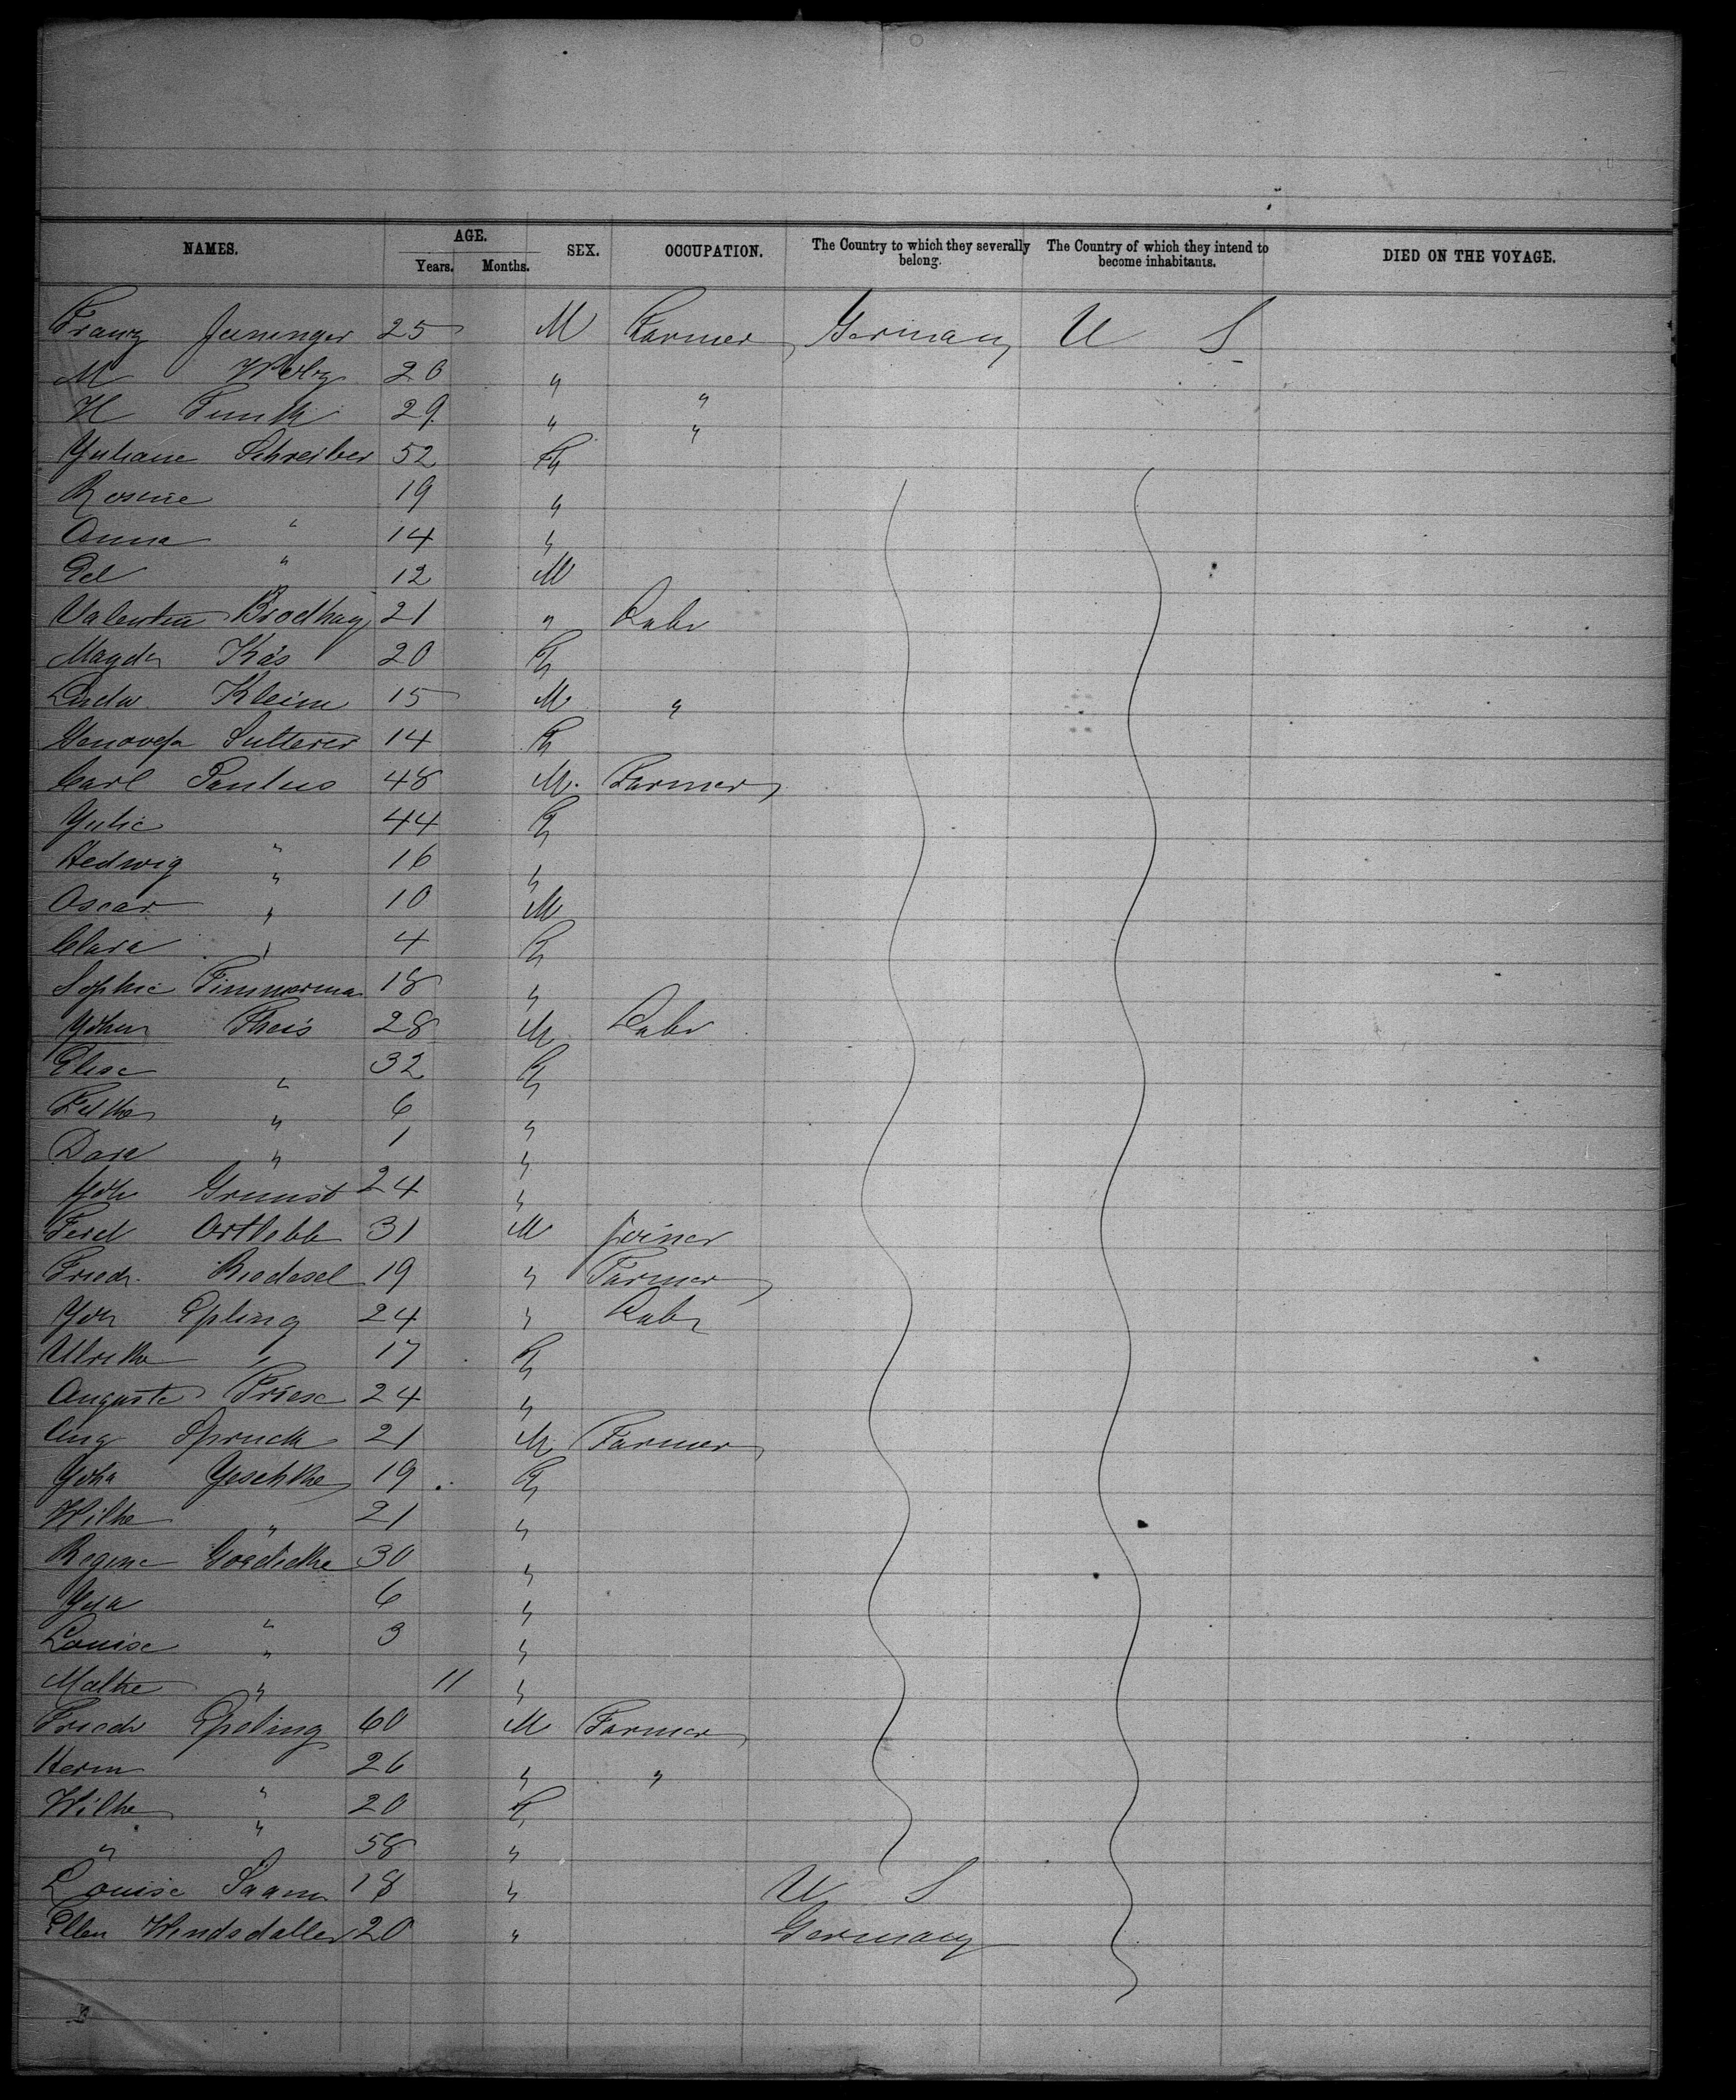 NAMES. AGE. SEX. OCCUPATION. The Country to which they severally belong. The Country of which they intend to become inhabitants. DIED ON THE VOYAGE.
Years. Months.
Franz Jeninger 25 M Farmer Germany U S
M 20 " "
H Funk 29 " "
Juliane Schreiber 52 F
Rosine " 19 "
Anna " 14 "
Ed 12 M
Valentin Brodhag 21 " Labr
Magda Kas 20 F
Ludw. Klein 15 M "
Genovefa Sutterer 14 F
Carl Paulus 48 M. Farmer
Julie " 44 F
Hedwig " 16 "
Oscar " 10 M
Clara " 4 F
Sophie Timmerma 18 "
Johan Theis 28 M Labr
Elise " 32 F
" 6 "
Dora " 1 "
Joh 24 "
Ferd Ortlebb 31 M Joiner
Friedr. Riedesel 19 " Farmer
Joh Epling 24 " Labr
Ulrike " 17 F
Auguste Friese 24 "
Aug Spruck 21 M Farmer
Joha Jeschke 19 F
Wilhe " 21 "
Regine Goedicke 30 "
" 6 "
Louise " 3 "
" 11 "
Friedr Epeling 60 M Farmer
Herm " 26 " "
Wilhe " 20 F
" " 58 "
Louise Saam 18 " U S
Ellen Windsdaller 20 " Germany